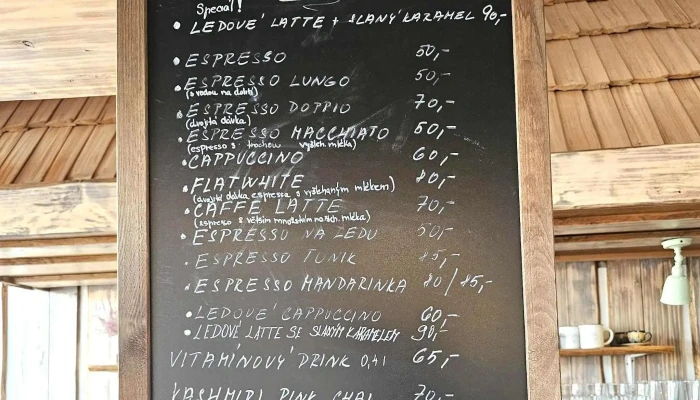 Special!
• LEDOVÉ LATTE + SLANÝ KARAMEL 90,-
• ESPRESSO 50,-
• ESPRESSO LUNGO 50,-
(s vodou na dolití)
• ESPRESSO DOPPIO 70,-
(dvojitá dávka)
• ESPRESSO MACCHIATO 50,-
(espresso s trochou vyšleh. mléka)
• CAPPUCCINO 60,-
• FLATWHITE 80,-
(dvojitá dávka espressa s vyšlehaným mlékem)
• CAFFE LATTE 70,-
(espresso s větším množstvím našleh. mléka)
• ESPRESSO NA LEDU 50,-
• ESPRESSO TONIK 85,-
• ESPRESSO MANDARINKA 80/85,-
• LEDOVÉ CAPPUCCINO 60,-
• LEDOVÉ LATTE SE SLANÝM KARAMELEM 90,-
VITAMÍNOVÝ DRINK 0,4l 65,-
KASHMIRI PINK CHAI 70,-